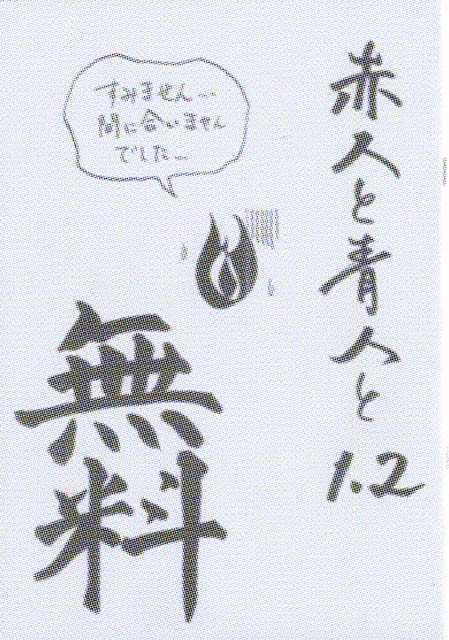 赤人と青人と1.2
すみません…
間に合いません
でした…
無料